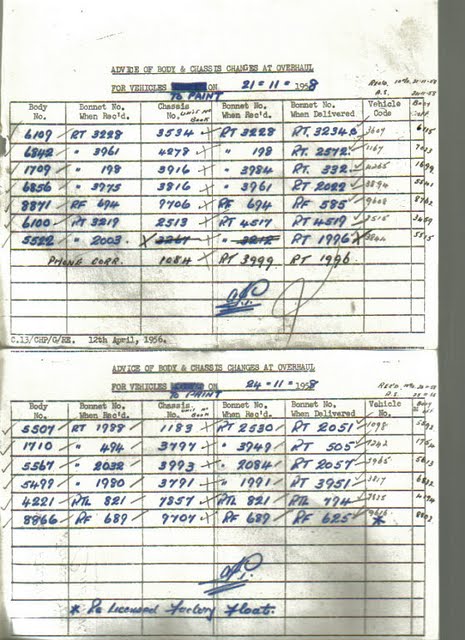 ADVICE OF BODY & CHASSIS CHANGES AT OVERHAUL
FOR VEHICLES ON 21-11-1958
TO PAINT
Body No. Bonnet No. When Rec'd. Chassis No. Unit No Book Bonnet No. When Rec'd. Bonnet No. When Delivered Vehicle Code Body
6109 RT 3228 3534 RT 3228 RT. 3234 3607
6842 " 3961 4278 " 198 RT. 2572 1167
1709 " 198 3916 " 3984 RT. 332 4265 1699
6856 " 3775 3816 " 3961 RT 2022 3894
8871 RF 694 9706 RF 694 RF 585 9608 8762
6100 RT 3219 2513 RT 4517 RT 4519 2515 3459
5522 " 2003. 3267 " 3212 RT 1996 5515
PHONE CORR. 1084 RT 3999 RT 1996
C.13/CHP/G/EE. 12th April, 1956.
ADVICE OF BODY & CHASSIS CHANGES AT OVERHAUL
FOR VEHICLES ON 24-11-1958
TO PAINT
Body No. Bonnet No. When Rec'd. Chassis No. Unit No Book Bonnet No. When Rec'd. Bonnet No. When Delivered Vehicle No. Body
5507 RT 1988 1183 RT 2530 RT 2051 1098
1710 " 494 3797 " 3949 RT 505
5567 " 2032 3993 " 2084 RT 2057 3965 5613
5499 " 1980 3791 " 1991 RT 3951 3817
4221 RTL 821 7857 RTL 821 RTL 794 7835
8866 RF 689 9707 RF 689 RF 625 *
* Re Licensed Factory Float.